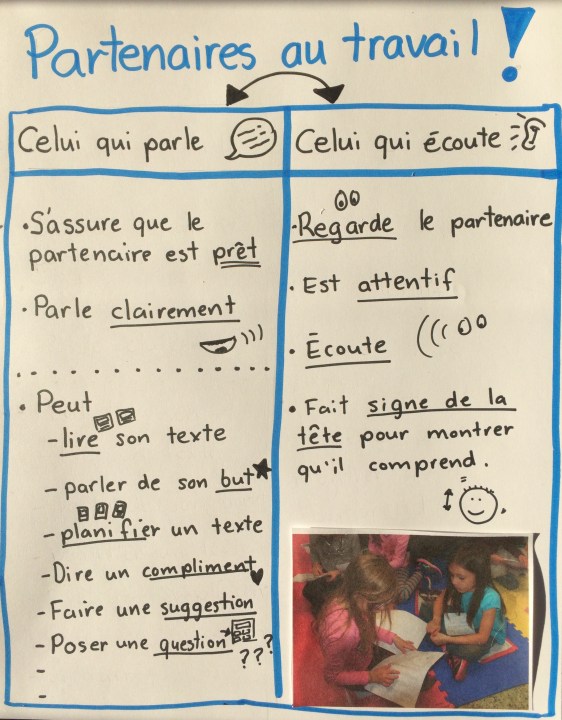 Partenaires au travail!
Celui qui parle
·S'assure que le
partenaire est prêt
·Parle clairement
· Peut
-lire son texte
- parler de son but
- planifier un texte
-Dire un compliment
-Faire une suggestion
-Poser une question
???
-
-
Celui qui écoute
·Regarde le partenaire
· Est attentif
· Écoute
· Fait signe de la
tête pour montrer
qu'il comprend.